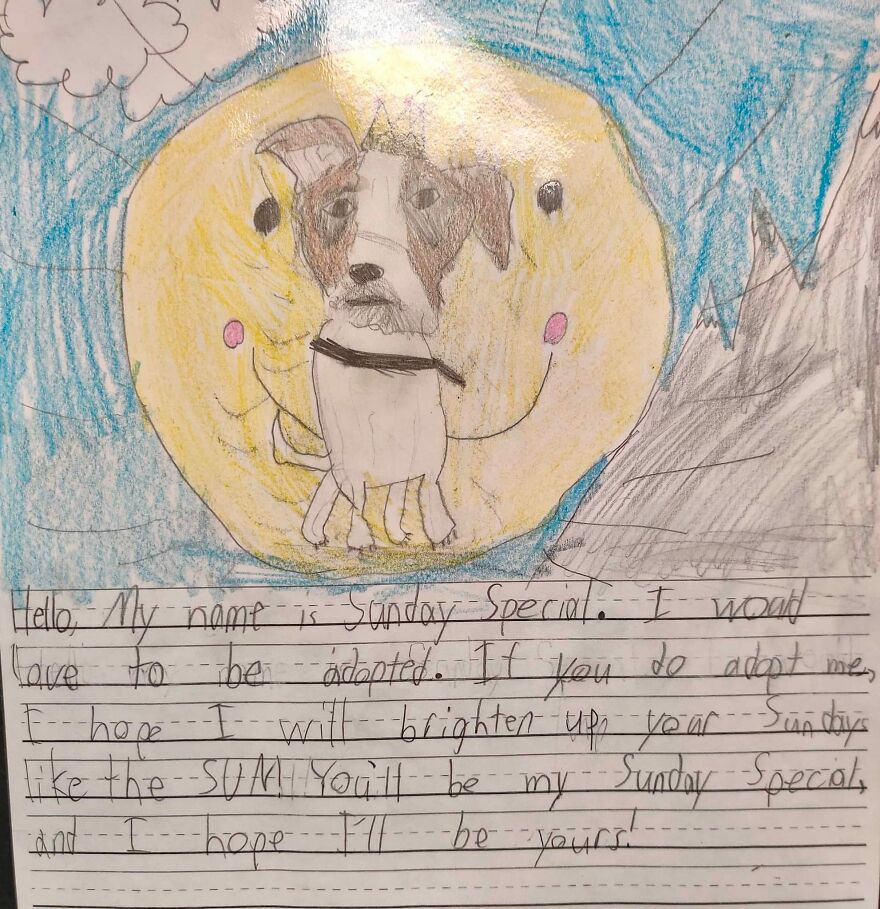 Hello, My name is Sunday Special. I woud
love to be adopted. If you do adopt me,
I hope I will brighten up your Sundays
like the SUN! You'll be my Sunday Special,
and I hope I'll be yours!